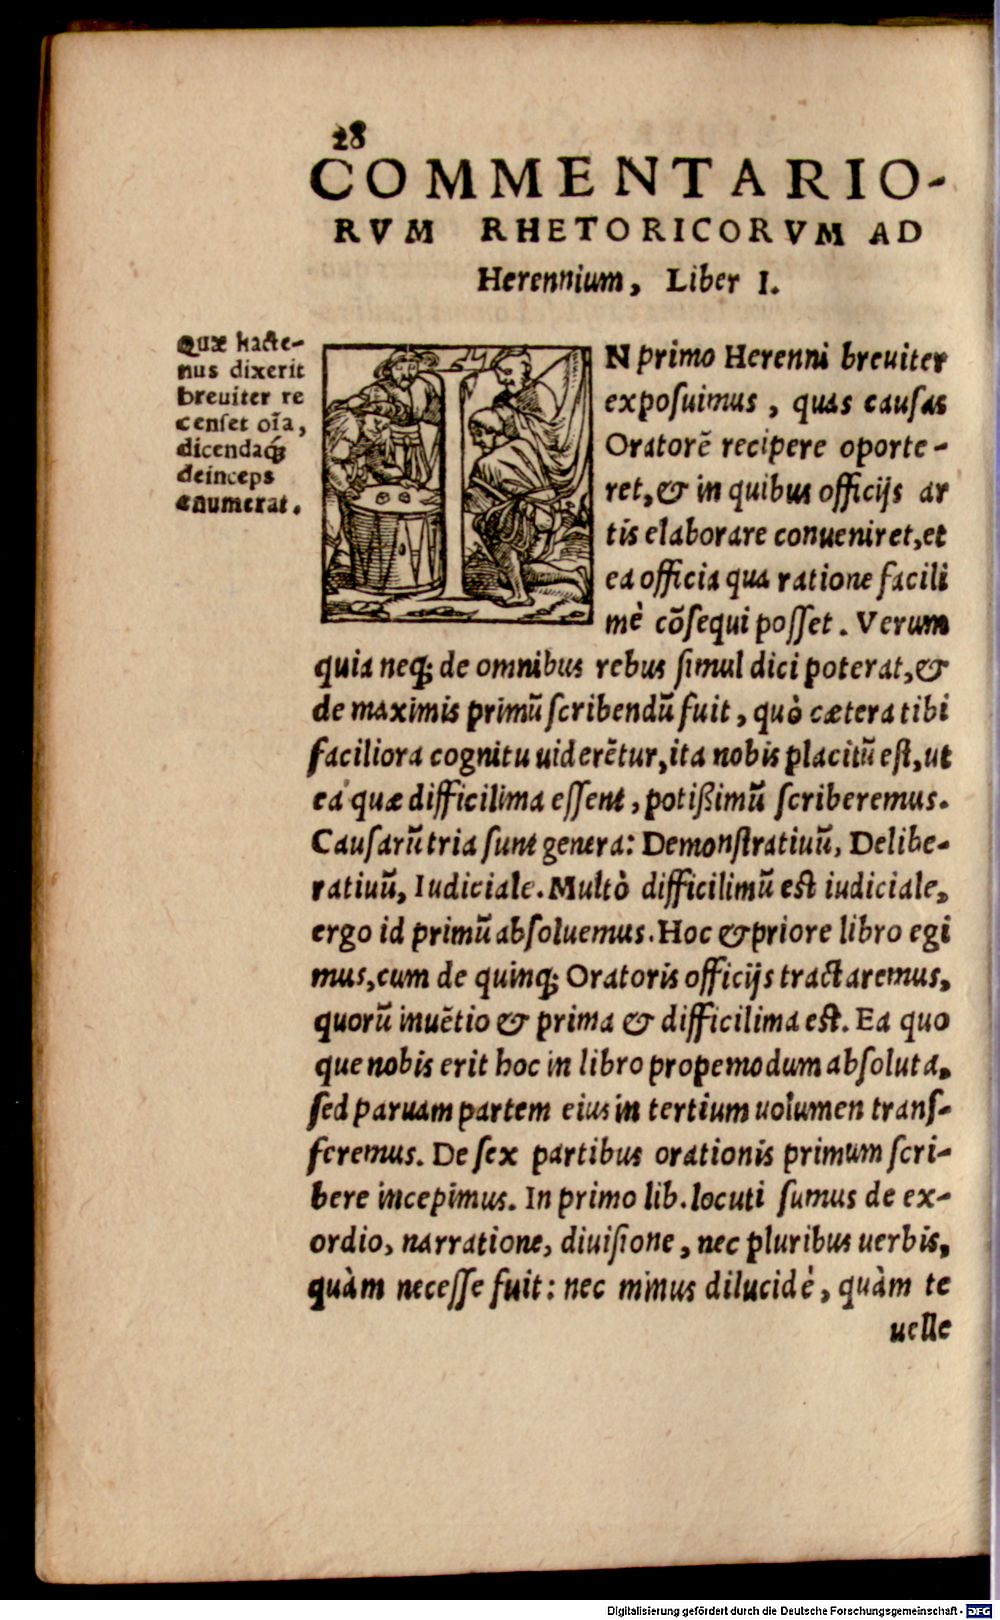 28
COMMENTARIO-
RVM RHETORICORVM AD
Herennium, Liber I.
Quæ hacte-
nus dixerit
breuiter re
censet oĩa,
dicendaq́;
deinceps
enumerat.
IN primo Herenni breuiter
exposuimus, quas causas
Oratorẽ recipere oporte-
ret, & in quibus officijs ar
tis elaborare conueniret, et
ea officia qua ratione facili
mè cõsequi posset. Verum
quia neq; de omnibus rebus simul dici poterat, &
de maximis primũ scribendũ fuit, quò cætera tibi
faciliora cognitu uiderẽtur, ita nobis placitũ est, ut
ea quæ difficilima essent, potißimũ scriberemus.
Causarũ tria sunt genera: Demonstratiuũ, Delibe-
ratiuũ, Iudiciale. Multò difficilimũ est iudiciale,
ergo id primũ absoluemus. Hoc & priore libro egi
mus, cum de quinq; Oratoris officijs tractaremus,
quorũ inuẽtio & prima & difficilima est. Ea quo
que nobis erit hoc in libro propemodum absoluta,
sed paruam partem eius in tertium uolumen trans-
feremus. De sex partibus orationis primum scri-
bere incepimus. In primo lib. locuti sumus de ex-
ordio, narratione, diuisione, nec pluribus uerbis,
quàm necesse fuit: nec minus dilucidè, quàm te
uelle
Digitalisierung gefördert durch die Deutsche Forschungsgemeinschaft - DFG